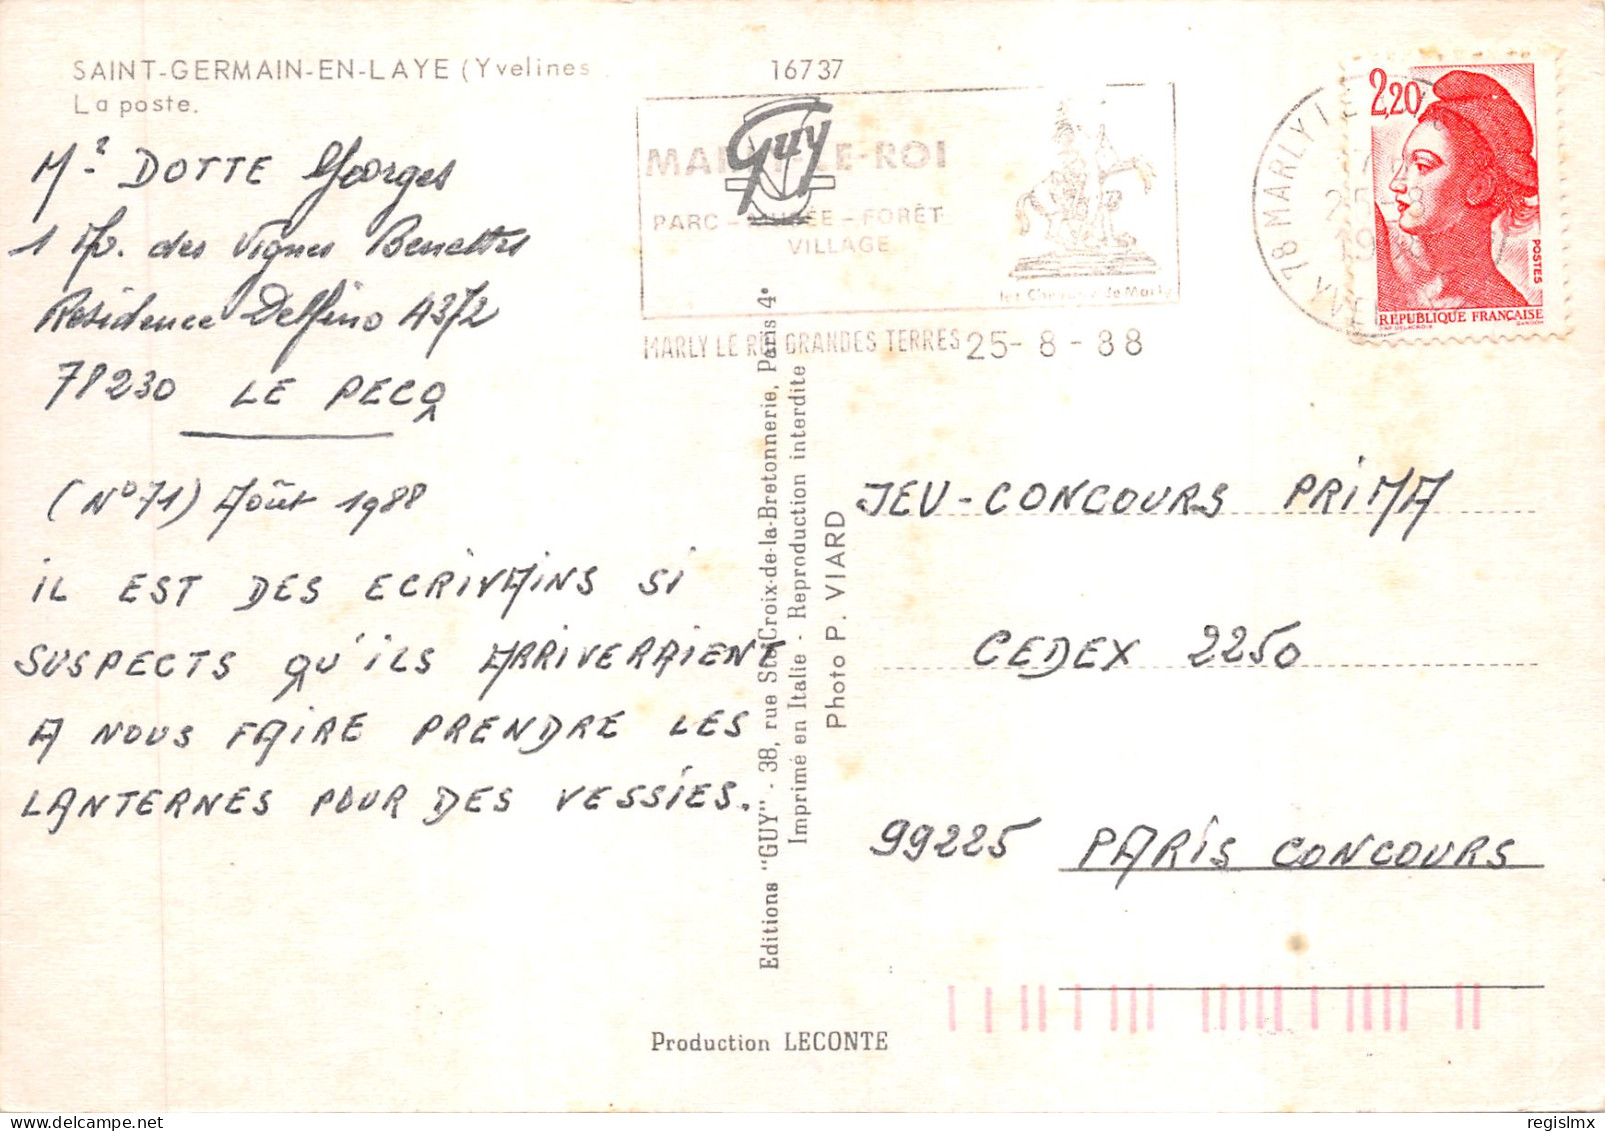 SAINT-GERMAIN-EN-LAYE (Yvelines
La poste.
16737
Mr DOTTE Georges
1 Av. des Vignes Benettes
Résidence Delfino A372
78230 LE PECQ
(N°71) Août 1988
IL EST DES ECRIVAINS SI
SUSPECTS QU'ILS ARRIVERAIENT
A NOUS FAIRE PRENDRE LES
LANTERNES POUR DES VESSIES.
Guy
MARLY-LE-ROI
PARC - MUSÉE - FORÊT
VILLAGE
les Chevaux de Marly
MARLY LE ROI GRANDES TERRES 25-8-88
78 MARLY
25-8
2,20
POSTES
RÉPUBLIQUE FRANÇAISE
D'AP. DELACROIX GANDON
Editions "GUY" - 38, rue Ste Croix-de-la-Bretonnerie, Paris 4e
Imprimé en Italie - Reproduction interdite
Photo P. VIARD
JEU-CONCOURS PRIMA
CEDEX 2250
99225 PARIS CONCOURS
Production LECONTE
delcampe.net
regislmx